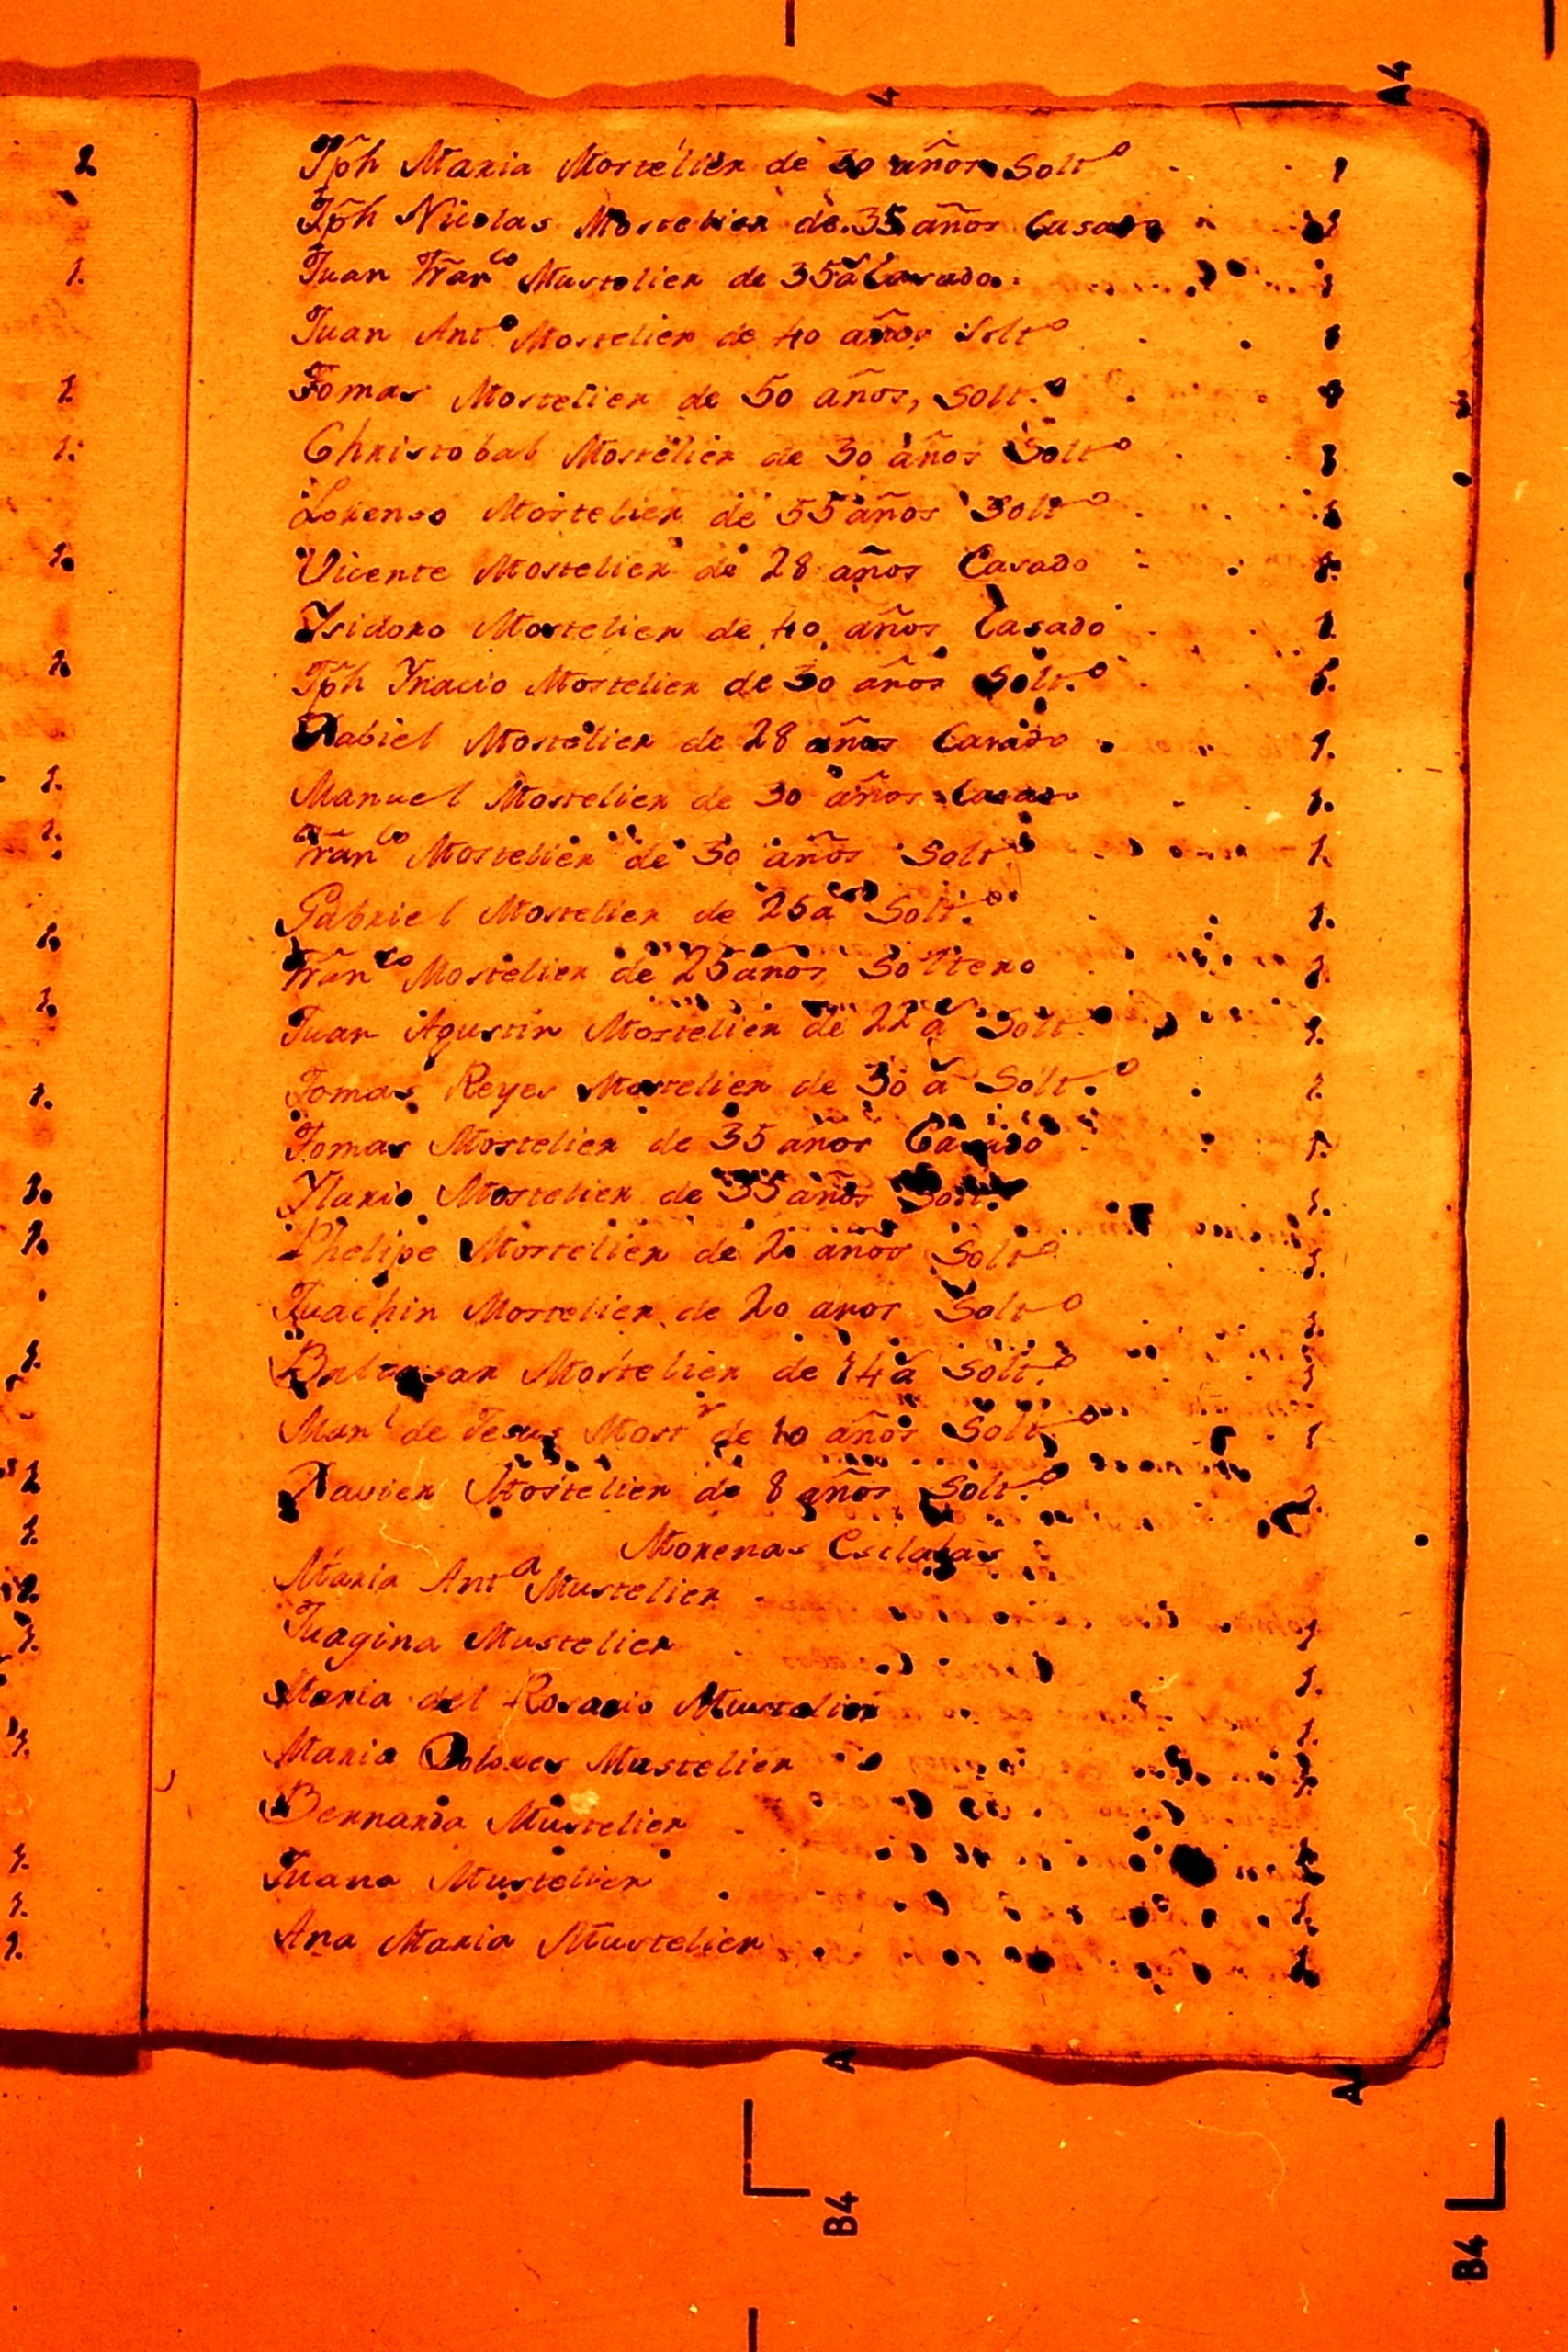 2
1.
1.
1.
1.
1.
1.
1.
1.
1.
1.
1.
1.
A4
4
Jph Maria Mostelier de 30 años Solto 1
Jph Nicolas Mostelier de 35 años Casado 1
Juan Franco Mustelier de 35 a Casado. 1
Juan Anto Mostelier de 40 años Solto 1
Tomas Mostelier de 50 años, Solto 1
Christobal Mostelier de 30 años Solto 1
Lorenso Mostelier de 55 años Solto 1
Vicente Mostelier de 28 años Casado 1.
Ysidoro Mostelier de 40 años Casado 1
Jph Ynacio Mostelier de 30 años Solto 1.
Xabiel Mostelier de 28 años Casado 1.
Manuel Mostelier de 30 años Casado 1.
Franco Mostelier de 30 años Solto 1.
Gabriel Mostelier de 25 a Solto 1.
Franco Mostelier de 25 años Soltero 1.
Juan Agustin Mostelier de 22 a Solto 1.
Tomas Reyes Mostelier de 30 a Solto 1.
Tomas Mostelier de 35 años Casado 1.
Ylario Mostelier de 35 años Solto 1.
Phelipe Mostelier de 20 años Solto 1.
Juachin Mostelier de 20 años Solto 1.
Baltasar Mostelier de 14 a Solto 1
Manl de Jesus Mostr de 10 años Solto 1
Xavier Mostelier de 8 años Solto 1.
Morenas Esclabas
Maria Anta Mustelier 1
Juagina Mustelier 1.
Maria del Rosario Mustelier 1.
Maria Dolores Mustelier 1.
Bernarda Mustelier 1
Juana Mustelier 1.
Ana Maria Mustelier 1.
A
A
B4
B4